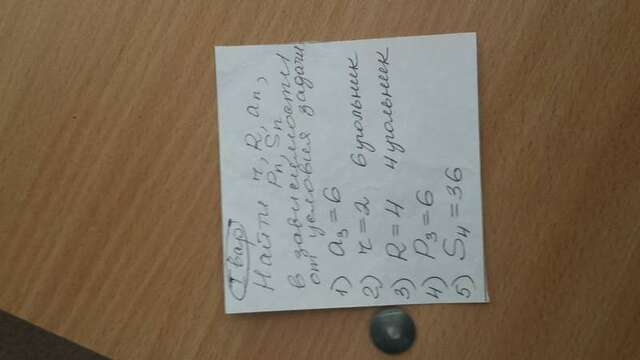 I вар
Найти r, R, an,
Pn, Sn
в зависимости
от условия задачи
1) a3 = 6
2) r = 2 6 угольник
3) R = 4 4 угольник
4) P3 = 6
5) S4 = 36